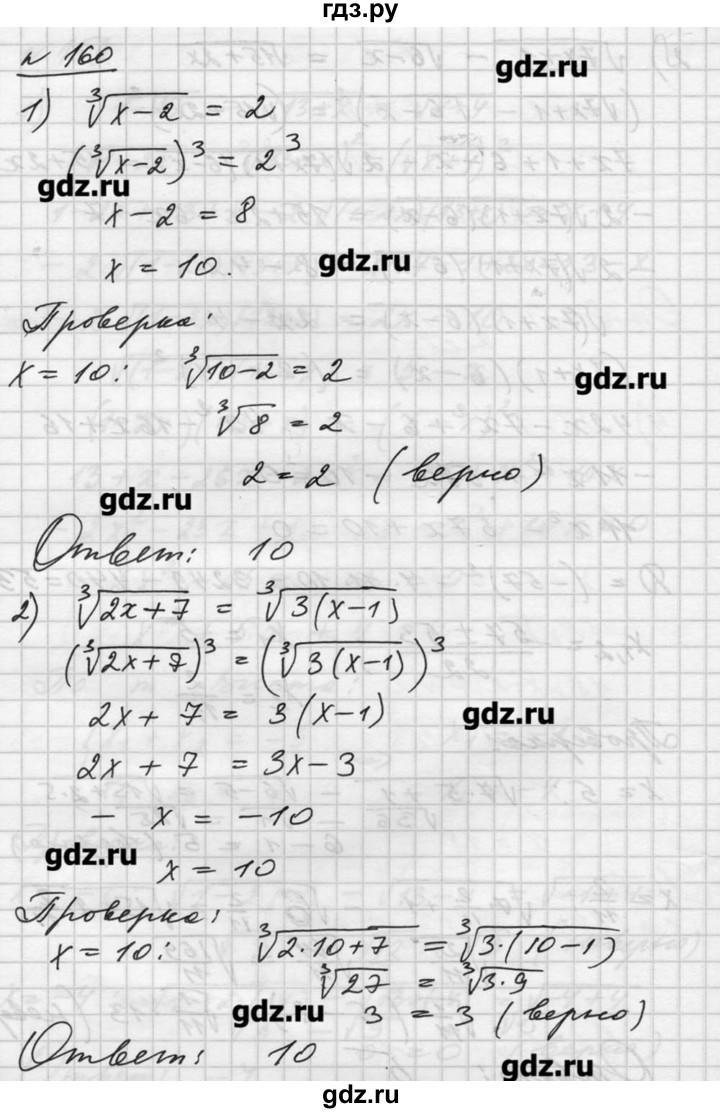 гдз.ру
№ 160
gdz.ru
1) ∛(x-2) = 2
(∛(x-2))³ = 2³
gdz.ru
x - 2 = 8
x = 10.
gdz.ru
Проверка:
x = 10: ∛(10-2) = 2
gdz.ru
∛8 = 2
2 = 2 (верно)
gdz.ru
Ответ: 10
2) ∛(2x+7) = ∛(3(x-1))
(∛(2x+7))³ = (∛(3(x-1)))³
2x + 7 = 3(x-1)
gdz.ru
2x + 7 = 3x - 3
- x = -10
gdz.ru
x = 10
Проверка:
x = 10: ∛(2·10+7) = ∛(3·(10-1))
∛27 = ∛(3·9)
gdz.ru
3 = 3 (верно)
Ответ: 10
gdz.ru
gdz.ru